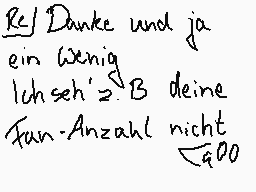 Re/ Danke und ja
ein wenig
Ich seh' z.B deine
Fan-Anzahl nicht